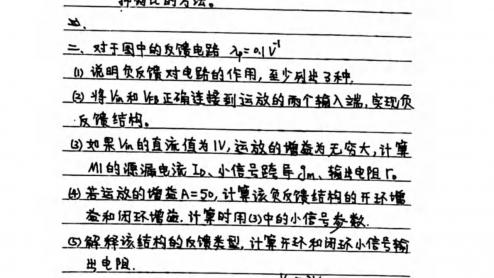 抑制它的方法。
二、对于图中的反馈电路 λp=0.1V⁻¹
(1) 说明负反馈对电路的作用，至少列出3种。
(2) 将Vin和VFB正确连接到运放的两个输入端，实现负
反馈结构。
(3) 如果Vin的直流值为1V，运放的增益为无穷大，计算
M1的源漏电流ID、小信号跨导gm、输出电阻ro
(4) 若运放的增益A=50，计算该负反馈结构的开环增
益和闭环增益。计算时用(3)中的小信号参数.
(5) 解释该结构的反馈类型，计算开环和闭环小信号输
出电阻.